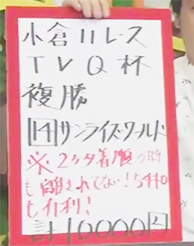 小倉11レース
TVQ杯
複勝
14サンライズ・ワールド
※2ケタ着順の時
も離されてない!5440
も有利!
計10000円